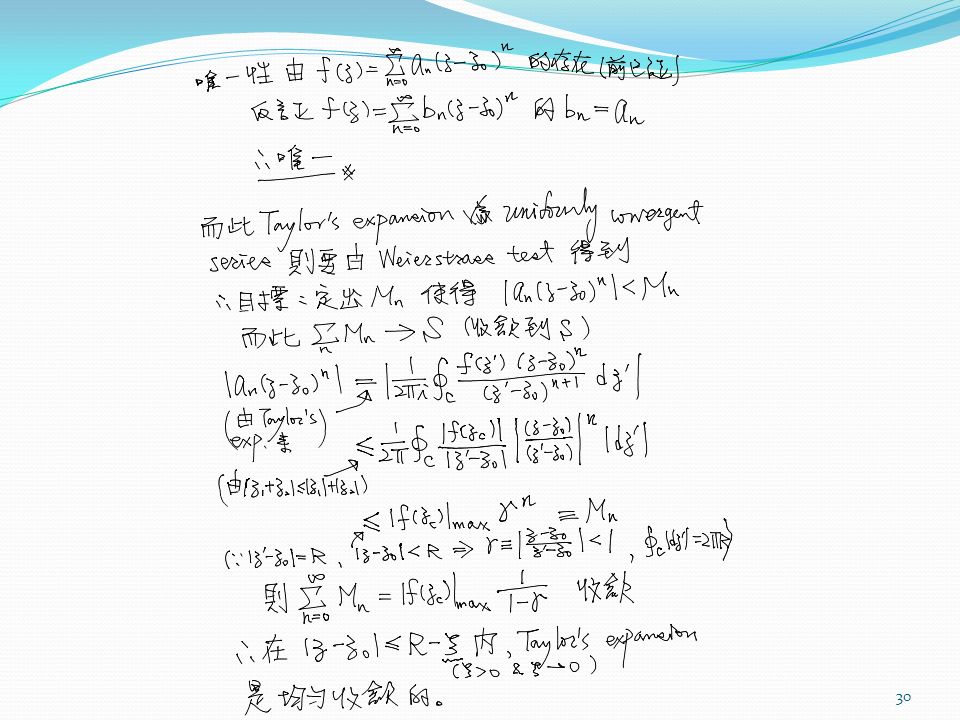 唯一性 由 f(z)=∑_{n=0}^{∞} a_n(z-z_0)^n 的存在(前已証)
反証正 f(z)=∑_{n=0}^{∞} b_n(z-z_0)^n 的 b_n = a_n
∴唯一 ※
而此 Taylor's expansion 為 uniformly convergent
series 則要由 Weierstrass test 得到
∴目標:定出 M_n 使得 |a_n(z-z_0)^n| < M_n
而此 ∑_n M_n → S (收歛到 S)
|a_n(z-z_0)^n| = |1/2πi ∮_C f(z')(z-z_0)^n/(z'-z_0)^{n+1} dz'|
(由 Taylor's
exp. 來)
≤ 1/2π ∮_C |f(z_c)|/|z'-z_0| |(z-z_0)/(z'-z_0)|^n |dz'|
(由|z_1+z_2|≤|z_1|+|z_2|)
≤ |f(z_c)|_max γ^n ≡ M_n
(∵|z'-z_0|=R、|z-z_0|<R ⇒ γ≡|z-z_0/z'-z_0|<1, ∮_C|dz'|=2πR)
則 ∑_{n=0}^{∞} M_n = |f(z_c)|_max · 1/1-γ 收歛
∴在 |z-z_0| ≤ R-ξ 內、Taylor's expansion
(ξ>0 & ξ→0)
是均勻收歛的。
30